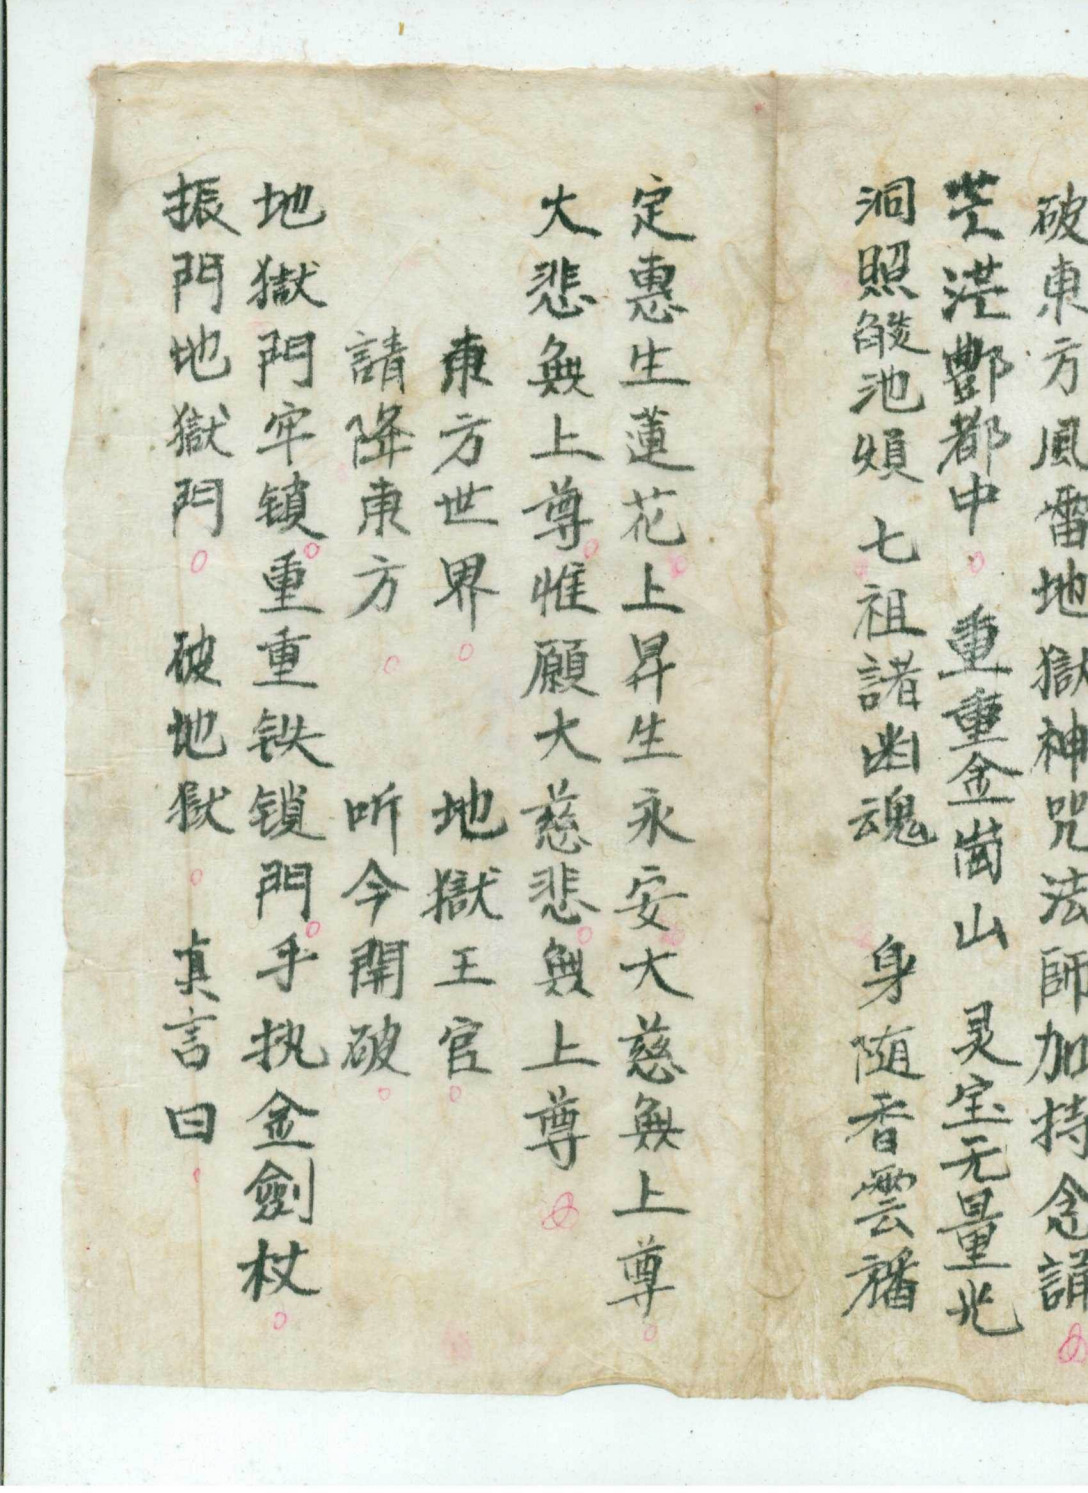 破東方風雷地獄神咒法師加持念誦
茫茫酆都中重重金崗山灵宝无量光
洞照燄池煩七祖諸幽魂身随香雲旛
定惠生蓮花上昇生永安大慈無上尊
大悲無上尊惟願大慈悲無上尊
東方世界地獄王官
請降東方听今開破
地獄門牢锁重重铁锁門手执金劍杖
振門地獄門破地獄真言曰